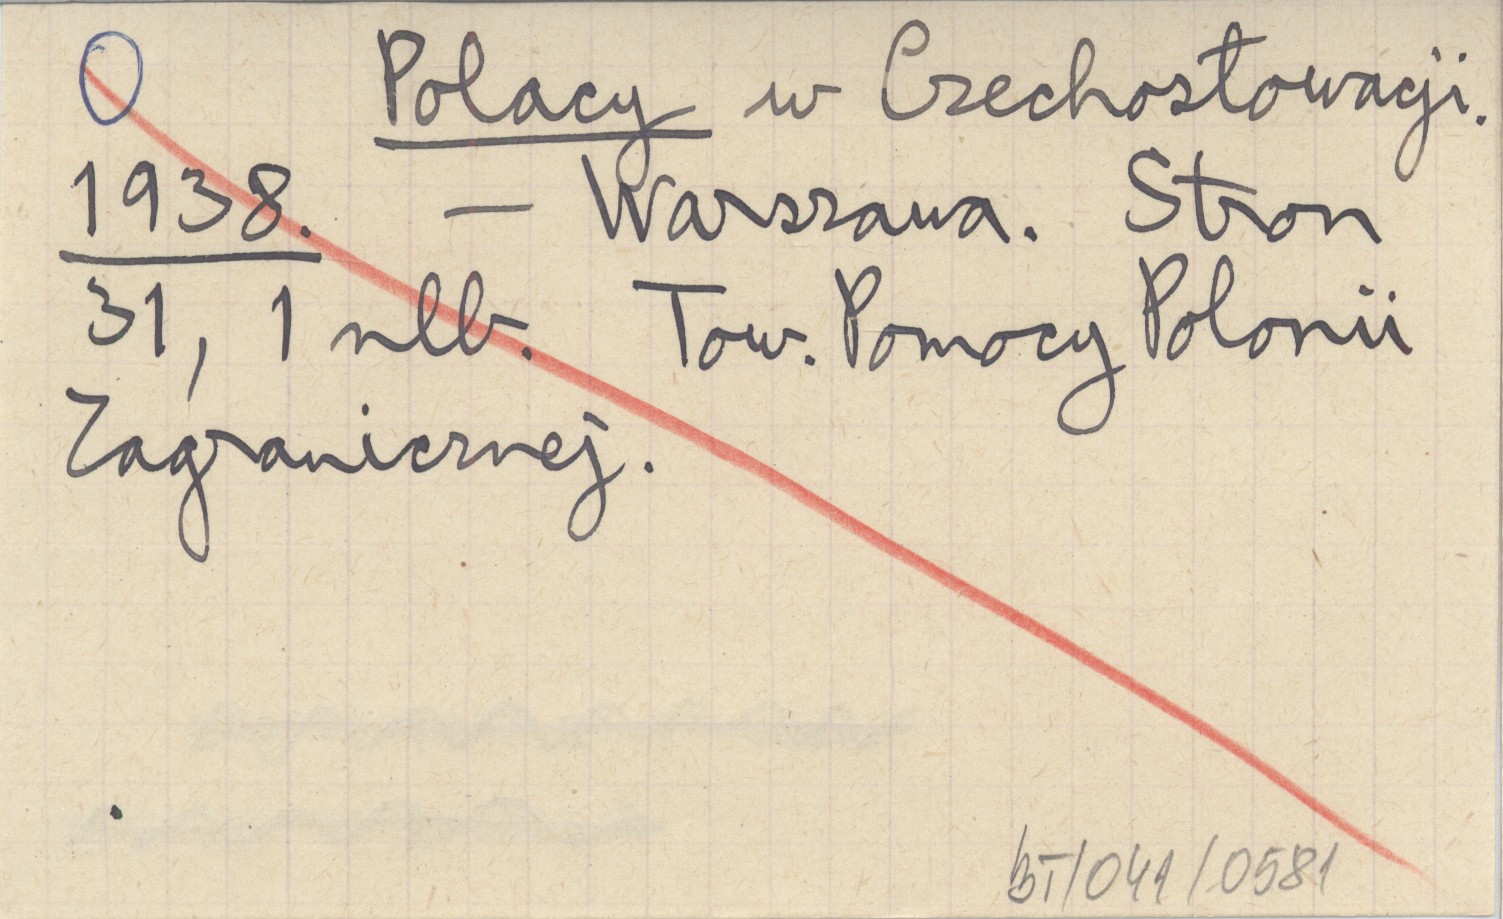 Polacy w Czechosłowacji.
1938. – Warszawa. Stron
31, 1 nlb. Tow. Pomocy Polonii
Zagranicznej.
BT/041/0581